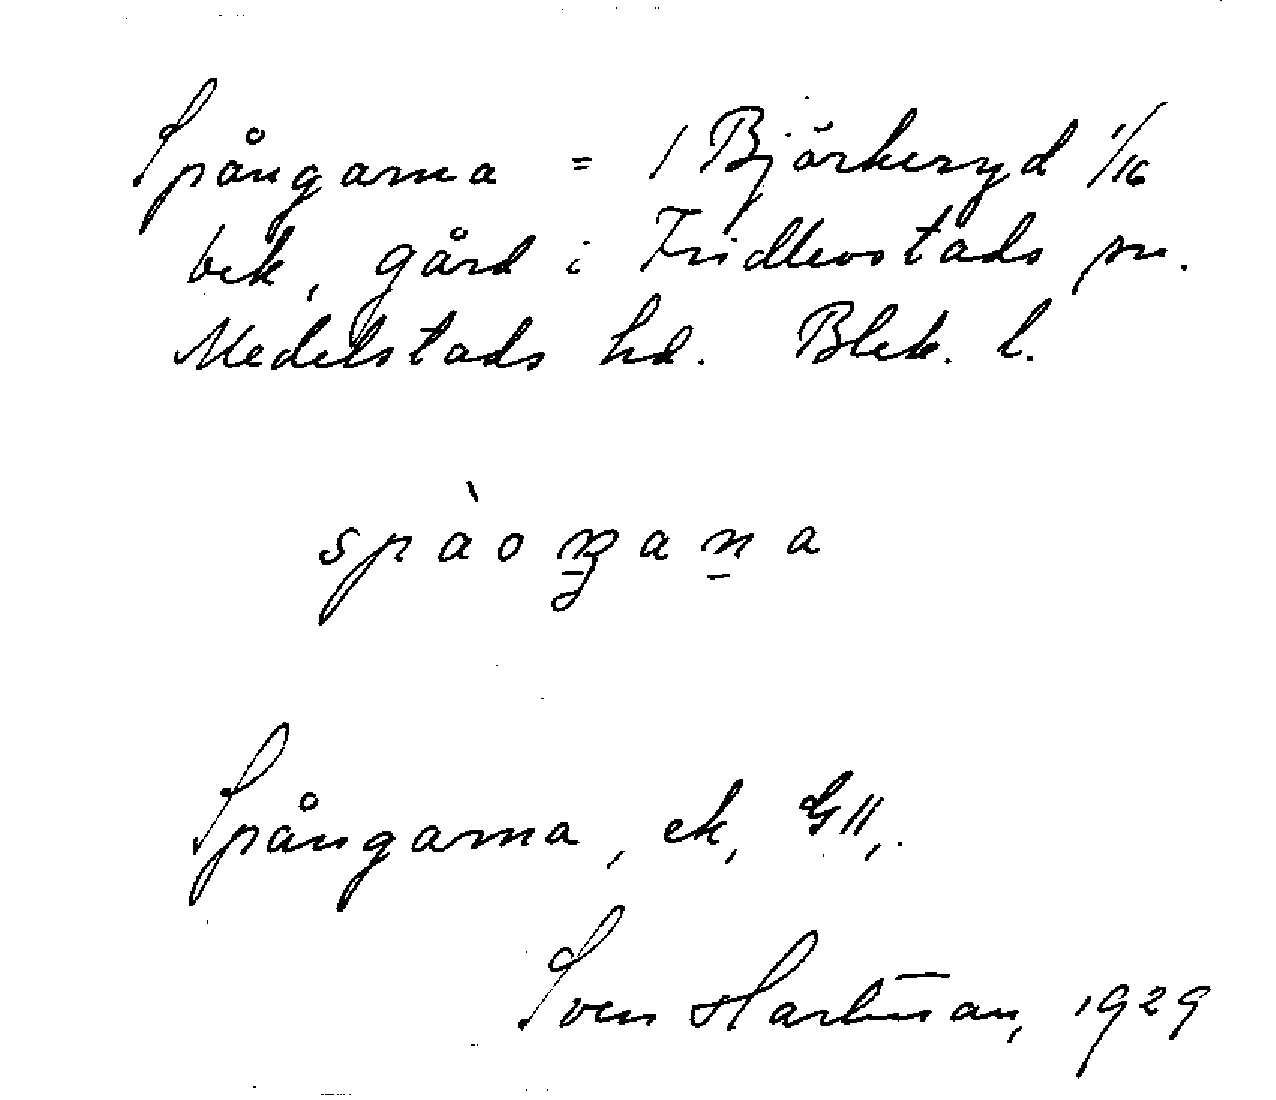 Spångarna = 1 Björkeryd 1/16
bek, gård i Fridlevstads sn.
Medelstads hd. Blek. l.
spàoŋana
Spångarna, ek, GII,.
Sven Hartman, 1929